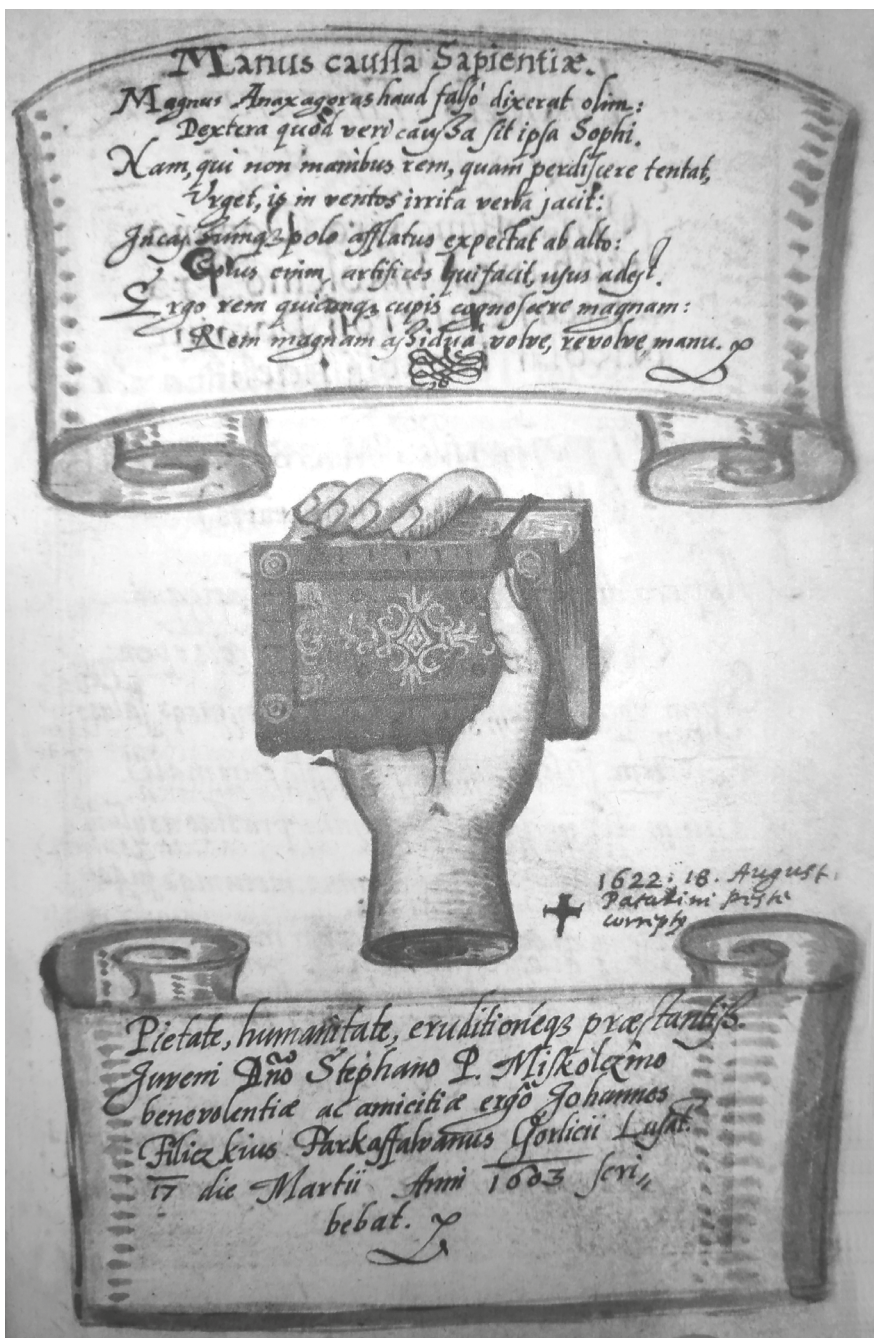 Manus caussa Sapientiæ.
Magnus Anaxagoras haud falsò dixerat olim:
Dextera quòd veri caussa sit ipsa Sophi.
Nam, qui non manibus rem, quam perdiscere tentat,
Urget, is in ventos irrita verba jacit:
polo afflatus expectat ab alto:
enim, artifices qui facit, usus adest.
Ergo rem quicunqz cupis cognoscere magnam:
Rem magnam assiduâ volve, revolve manu.
1622: 18. August.
Patakini peste
Pietate, humanitate, eruditioneqz præstantiss.
Juveni Dño Stephano P. Miskolczino
benevolentiæ ac amicitiæ ergò Johannes
Filiczkius Farkaffalvanus Gorlicii Lusat.
17 die Martii Anni 1603 scri„
bebat.